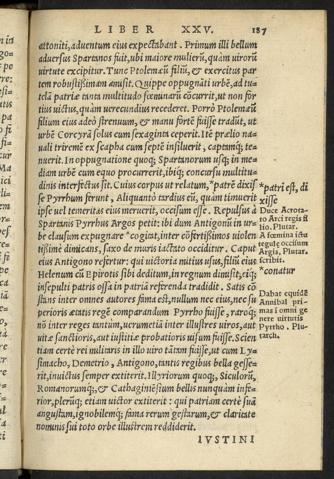 LIBER XXV. 187
attoniti, aduentum eius expectabant. Primum illi bellum
aduersus Spartanos fuit, ubi maiore mulierũ, quàm uirorũ
uirtute excipitur. Tunc Ptolemæũ filiũ, & exercitus par
tem robustissimam amisit. Quippe oppugnãti urbẽ, ad tu-
telã patriæ tanta multitudo fœminarũ cõcurrit, ut non for
tius uictus, quàm uerecundius recederet. Porrò Ptolemæũ
filium eius adeò strenuum, & manu fortẽ fuisse tradũt, ut
urbẽ Corcyrã solus cum sexaginta ceperit. Itẽ prælio na-
uali triremẽ ex scapha cum septẽ insiluerit, captamq́; te-
nuerit. In oppugnatione quoq; Spartanorum usq; in me-
diam urbẽ cum equo procurrerit, ibiq; concursu multitu-
dinis interfectus sit. Cuius corpus ut relatum, *patrẽ dixis
se Pyrrhum ferunt, Aliquantò tardius eũ, quàm timuerit
ipse uel temeritas eius meruerit, occisum esse. Repulsus à
Spartanis Pyrrhus Argos petit: ibi dum Antigonũ in ur-
be clausum expugnare *cogitat, inter cõfertissimos uiolen
tissimè dimicans, saxo de muris iactato occiditur. Caput
eius Antigono refertur: qui uictoria mitius usus, filiũ eius
Helenum cũ Epirotis sibi deditum, in regnum dimisit, eiq́;
insepulti patris ossa in patriã referenda tradidit. Satis cõ
stans inter omnes autores fama est, nullum nec eius, nec su
perioris ætatis regẽ comparandum Pyrrho fuisse, raroq́;
nõ inter reges tantùm, uerumetiã inter illustres uiros, aut
uitæ sanctioris, aut iustitiæ probatioris uisum fuisse. Scien
tiam certè rei militaris in illo uiro tãtam fuisse, ut cum Ly-
simacho, Demetrio, Antigono, tantis regibus bella gesse-
rit, inuictus semper extiterit. Illyriorum quoq;, Siculorũ,
Romanorumq́;, & Carthaginẽsium bellis nunquàm infe-
rior, plerũq; etiam uictor extiterit: qui patriam certè suã
angustam, ignobilemq́; fama rerum gestarum, & claritate
nominis sui toto orbe illustrem reddiderit.
IVSTINI
*patri est, di
xisse
Duce Acrota-
to Arei regis fi
lio. Plutar.
A fœmina ictu
tegulę occisum
Argis, Plutar.
scribit.
*conatur
Dabat equidẽ
Annibal pri-
mas ĩ omni ge
nere uirtutis
Pyrrho. Plu-
tarch.